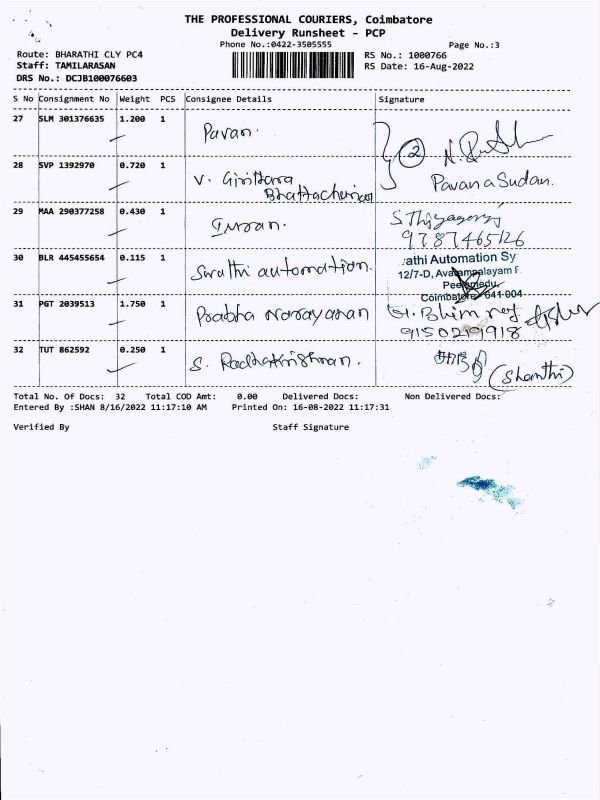 THE PROFESSIONAL COURIERS, Coimbatore
Delivery Runsheet - PCP
Phone No.:0422-3505555
Page No.:3
Route: BHARATHI CLY PC4
RS No.: 1000766
Staff: TAMILARASAN
RS Date: 16-Aug-2022
DRS No.: DCJB100076603
S No Consignment No Weight PCS Consignee Details Signature
27 SLM 301376635 1.200 1 Pavan.
2
28 SVP 1392970 0.720 1 V. Girittara
Bhattacherjee
Pavana Sudan.
29 MAA 290377258 0.430 1
9787465126
30 BLR 445455654 0.115 1 Swathi automation.
athi Automation Sy
12/7-D, Avarampalayam
Peelamedu,
Coimbatore 641 004
31 PGT 2039513 1.750 1 Prabha Narayanan
9150219918
32 TUT 862592 0.250 1 S. Radhakrishnan.
(Shanthi)
Total No. Of Docs: 32 Total COD Amt: 0.00 Delivered Docs: Non Delivered Docs:
Entered By :SHAN 8/16/2022 11:17:10 AM Printed On: 16-08-2022 11:17:31
Verified By Staff Signature